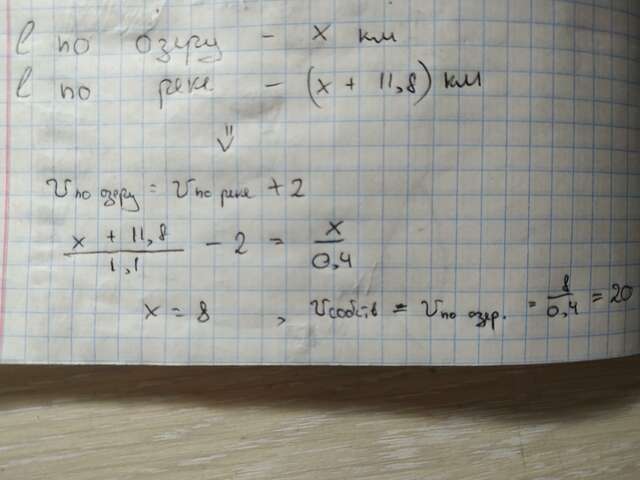 l по озеру - x км
l по реке - (x + 11,8) км
⇓
V по озеру = V по реке + 2
x + 11,8 / 1,1 - 2 = x / 0,4
x = 8 , V собств = V по озер. = 8 / 0,4 = 20